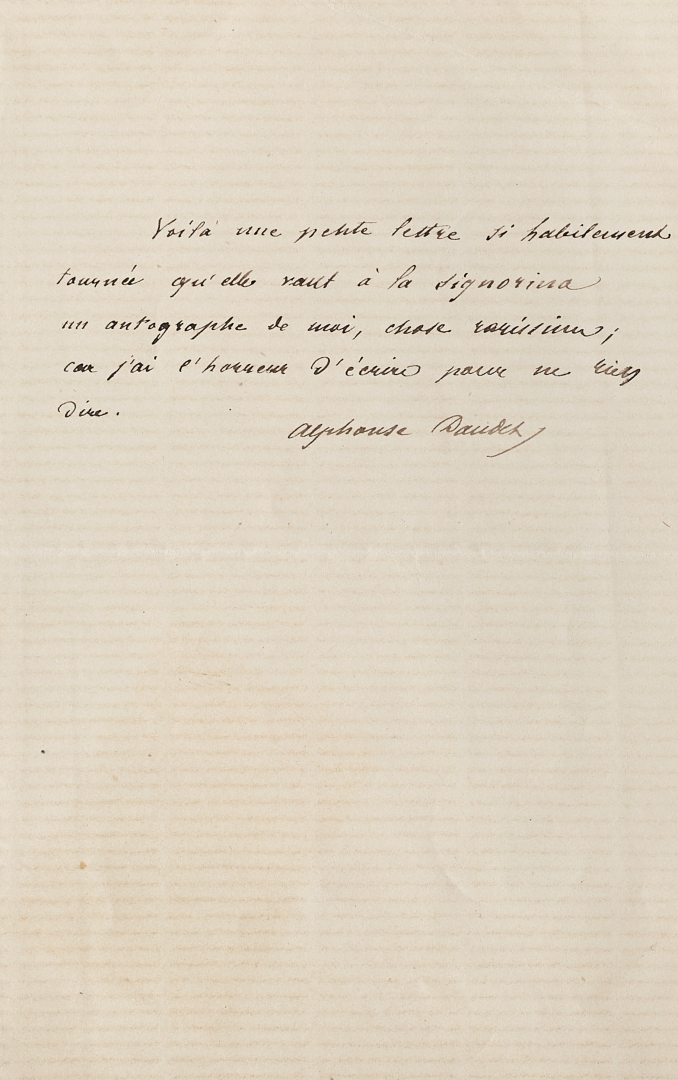 Voilà une petite lettre si habilement
tournée qu'elle vaut à la signorina
un autographe de moi, chose rarissime;
car j'ai l'horreur d'écrire pour ne rien
dire.
Alphonse Daudet